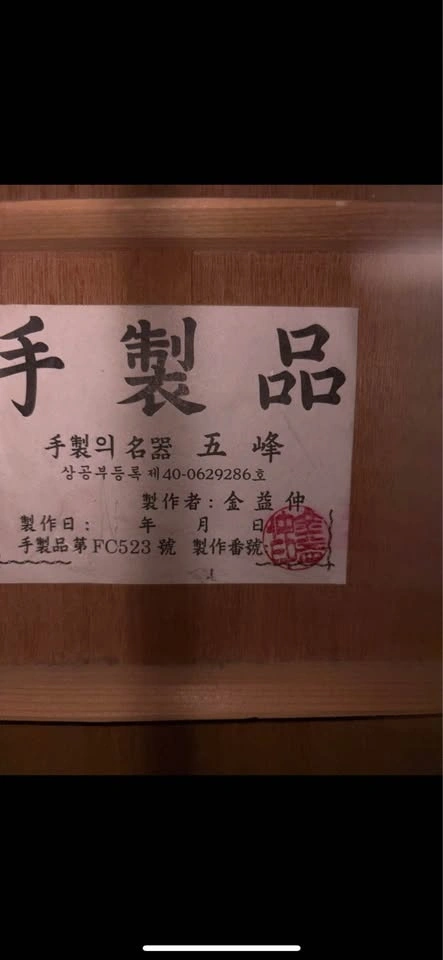 手製品
手製의 名器 五峰
상공부등록 제40-0629286호
製作者: 金益仲
製作日: 年 月 日
手製品第 FC523 號 製作番號